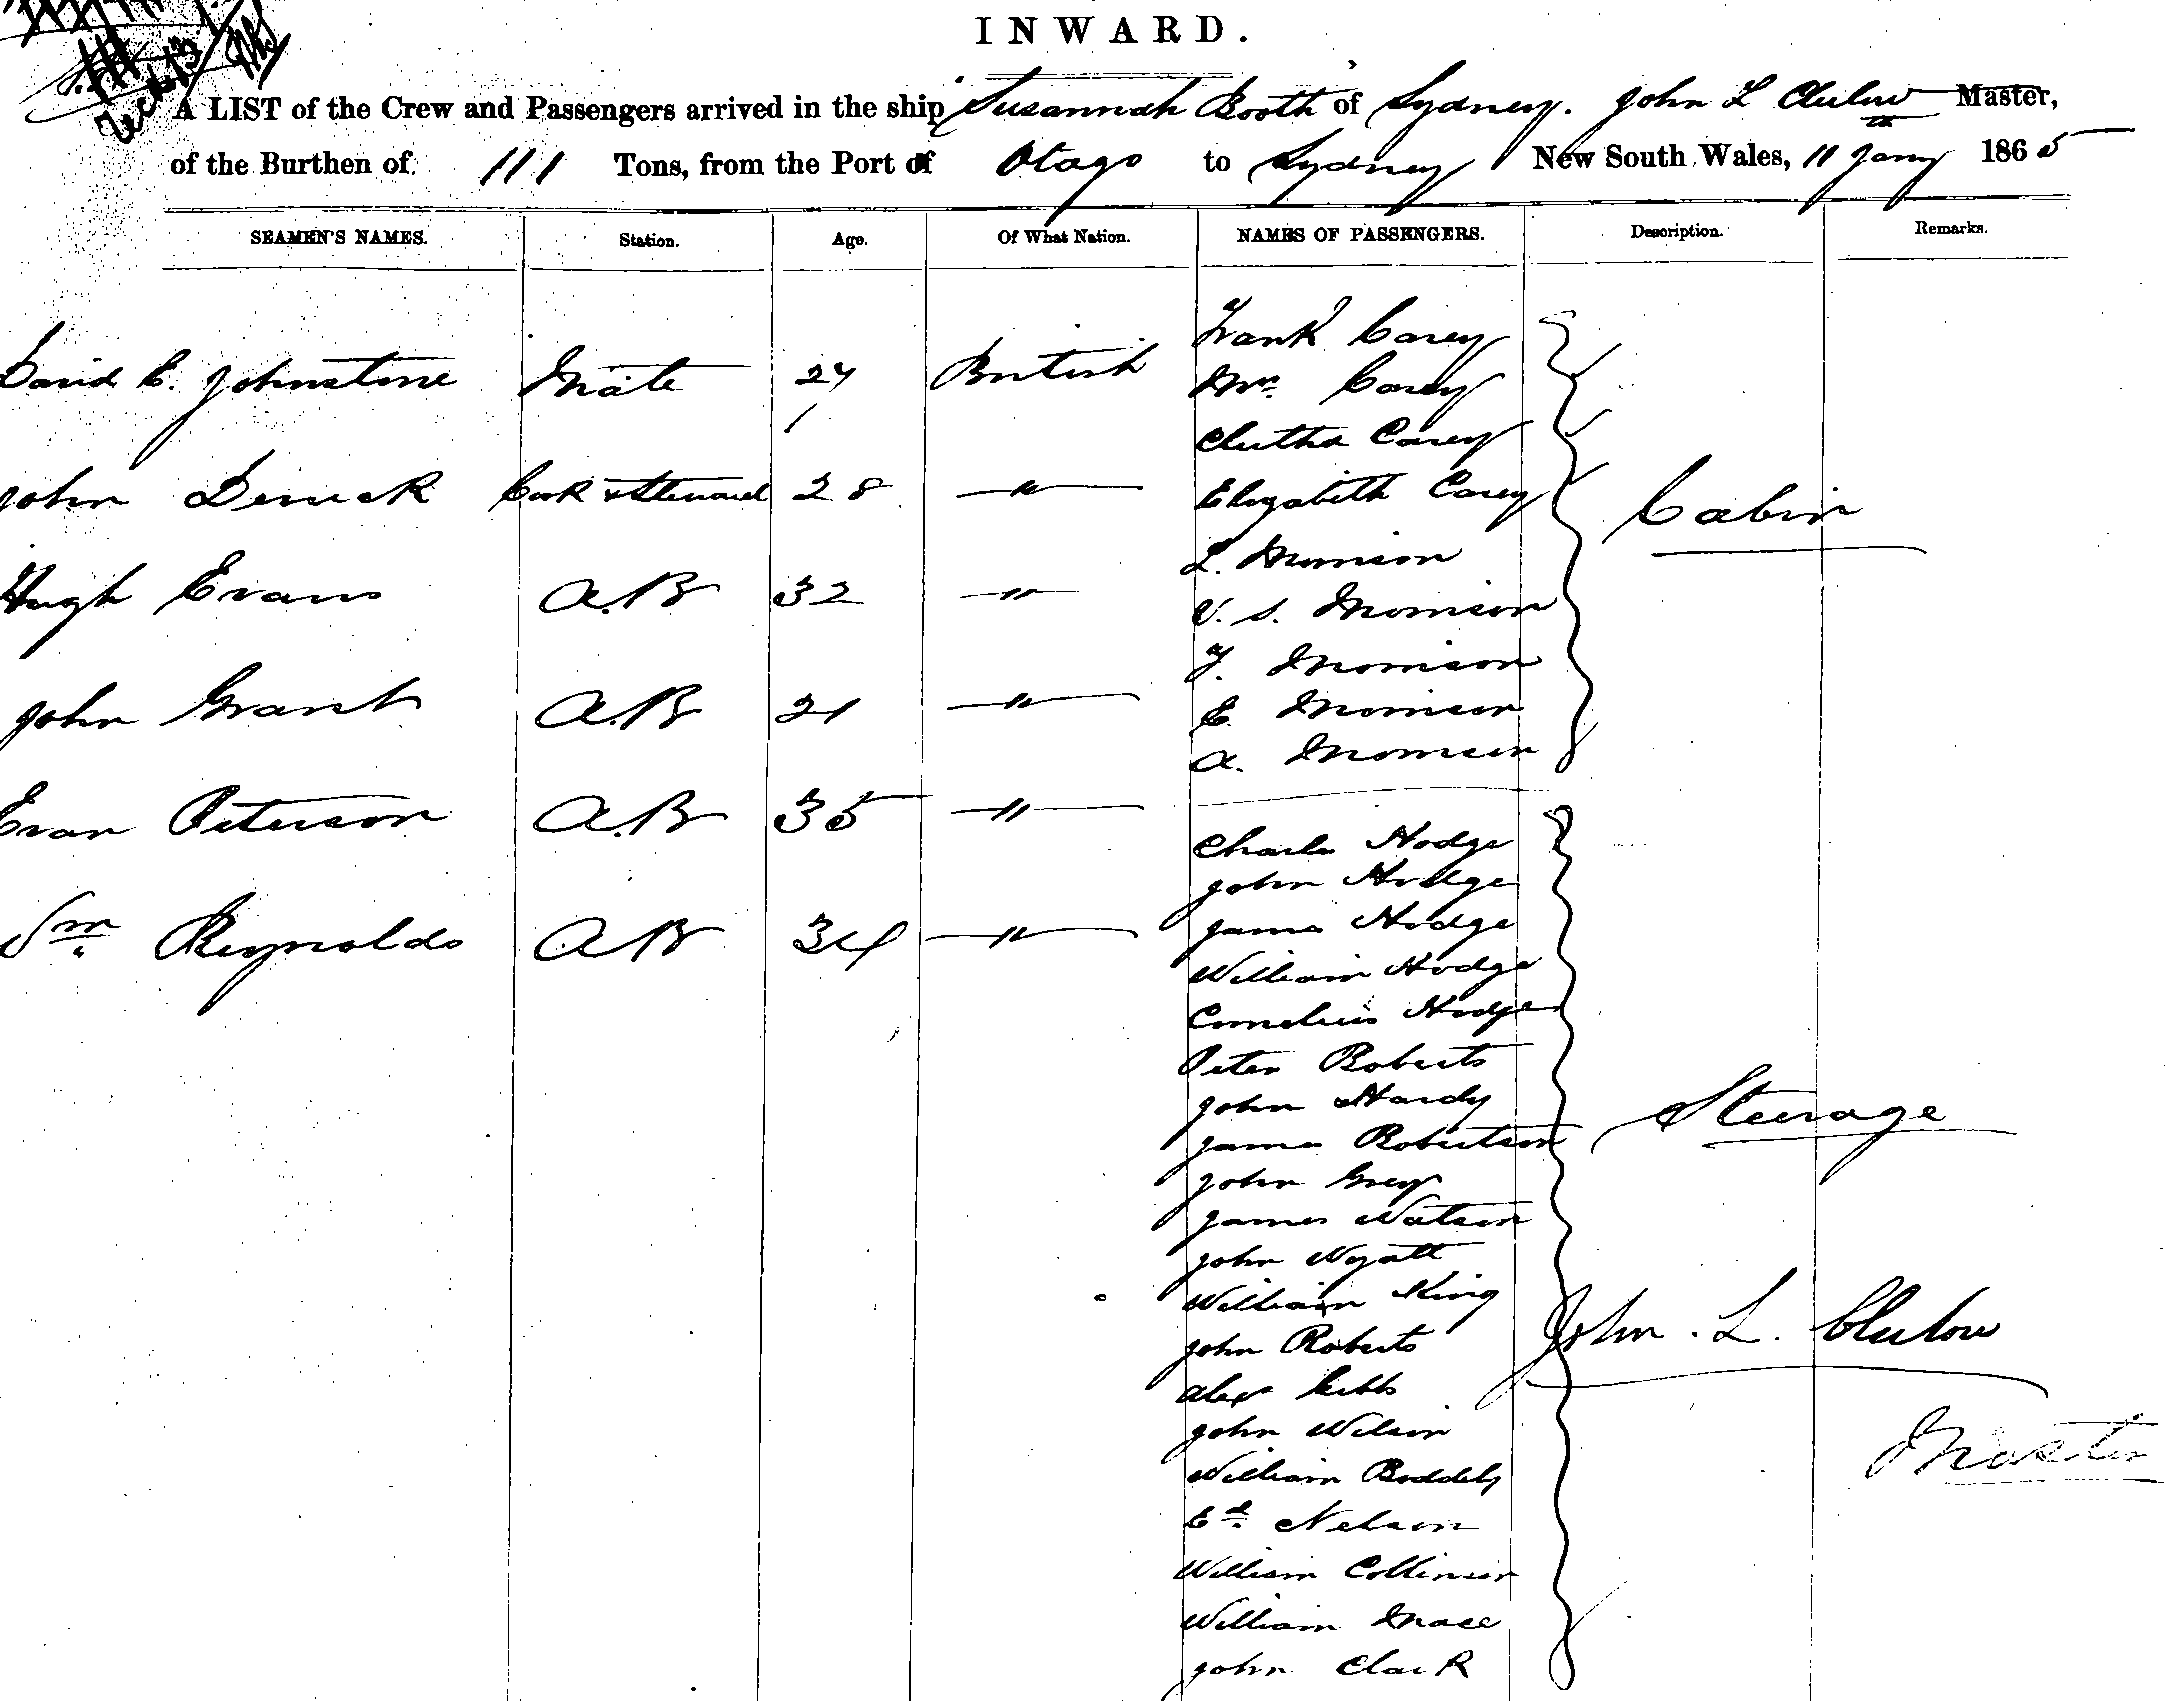 INWARD.
A LIST of the Crew and Passengers arrived in the ship Susannah Booth of Sydney. John L Clulow Master,
of the Burthen of 111 Tons, from the Port of Otago to Sydney New South Wales, 11 Jany 1865
SEAMEN'S NAMES. Station. Age. Of What Nation. NAMES OF PASSENGERS. Description. Remarks.
Frank Carey
David C. Johnstone Mate 27 British Mrs. Carey
Clutha Carey
John Derrick Cook & Steward 28 " Elizabeth Carey Cabin
L. Morrison
Hugh Evans A.B 32 " V. S. Morrison
F. Morrison
John Grant A.B 21 " E. Morrison
A. Morrison
Evan Peterson A.B 35 "
Charles Hodge
John Hodge
Wm. Reynolds A B 34 " James Hodge
William Hodge
Cornelius Hodge
Peter Roberts
John Hardy Steerage
James Robertson
John Grey
James Watson
John Wyatt
William King
John Roberts John. L. Clulow
Alex Gibb
John Wilson Master
William Boddily
Ed. Nelson
William Collinson
William Mace
John Clark